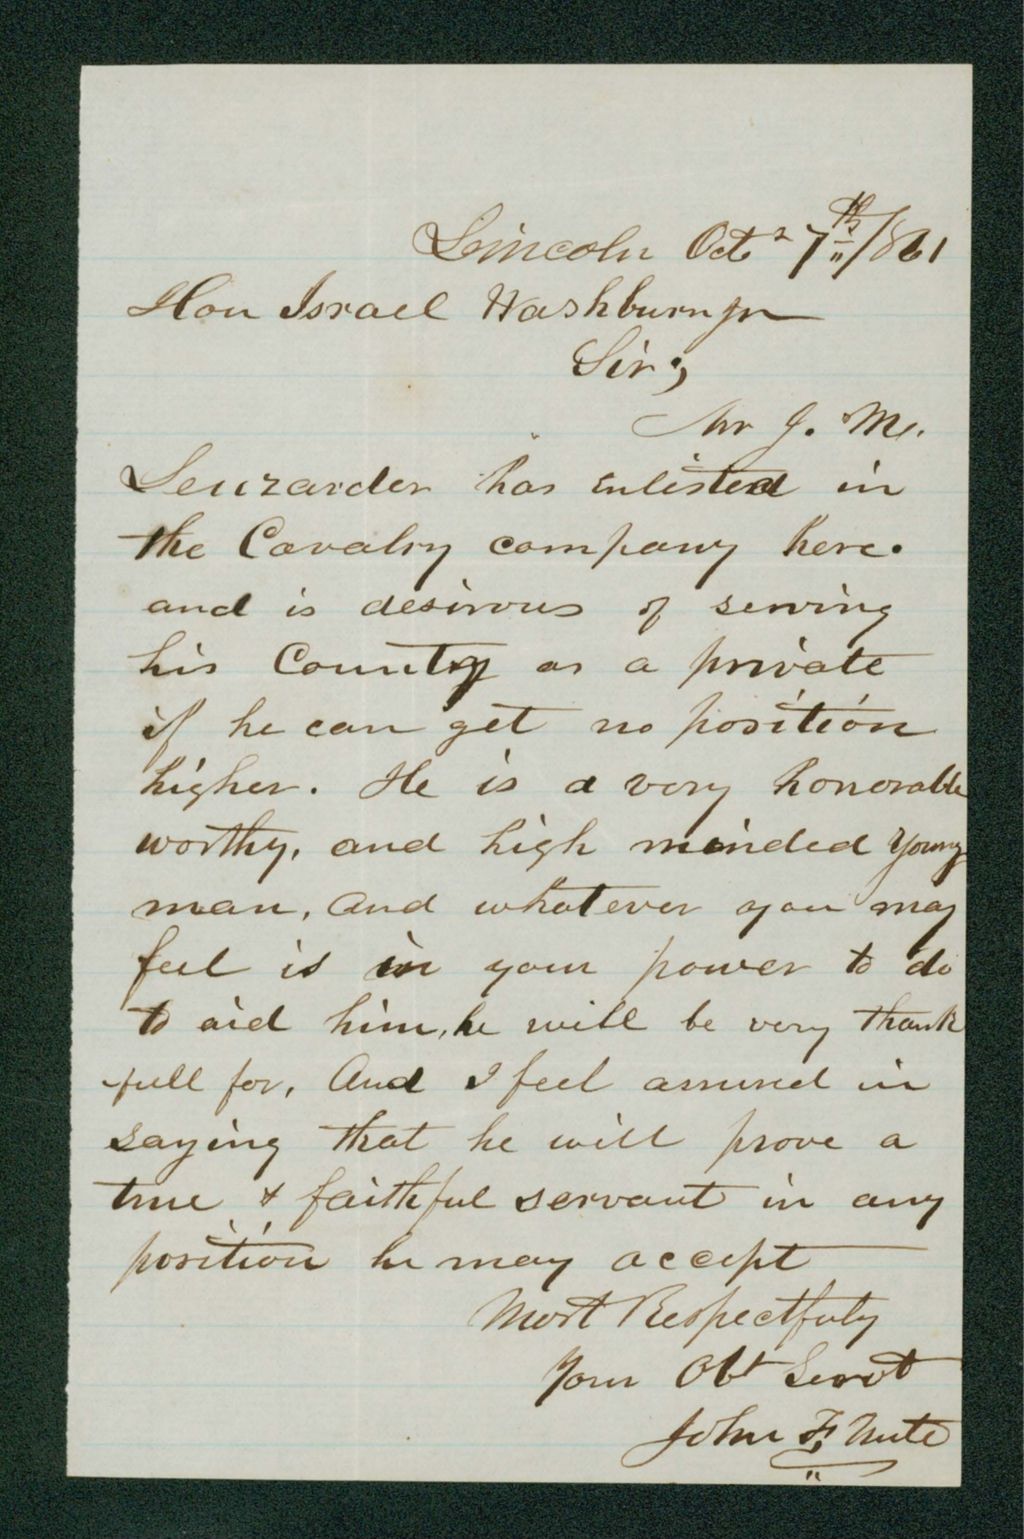 Lincoln Oct 7th /861
Hon Israel Washburn Jr
Sir;
Mr J. M.
has enlisted in
the Cavalry company here.
and is desirous of serving
his Country as a private
if he can get no position
higher. He is a very honorable
worthy, and high minded young
man, and whatever you may
feel is in your power to do
to aid him, he will be very thank
full for, And I feel assured in
saying that he will prove a
true & faithful servant in any
position he may accept
Most Respectfuly
Your Obt Servt
John F Nute